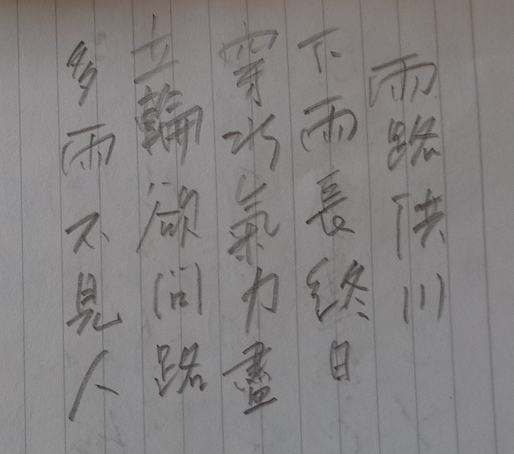 雨路洪川
下雨長終日
穿水氣力盡
立輪欲问路
多雨不見人